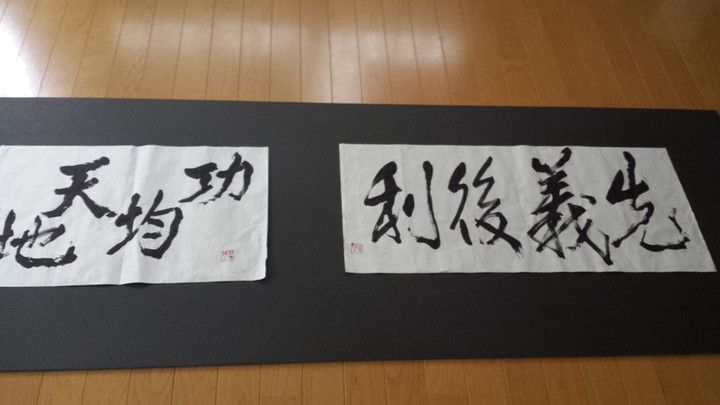 先義後利
功均天地